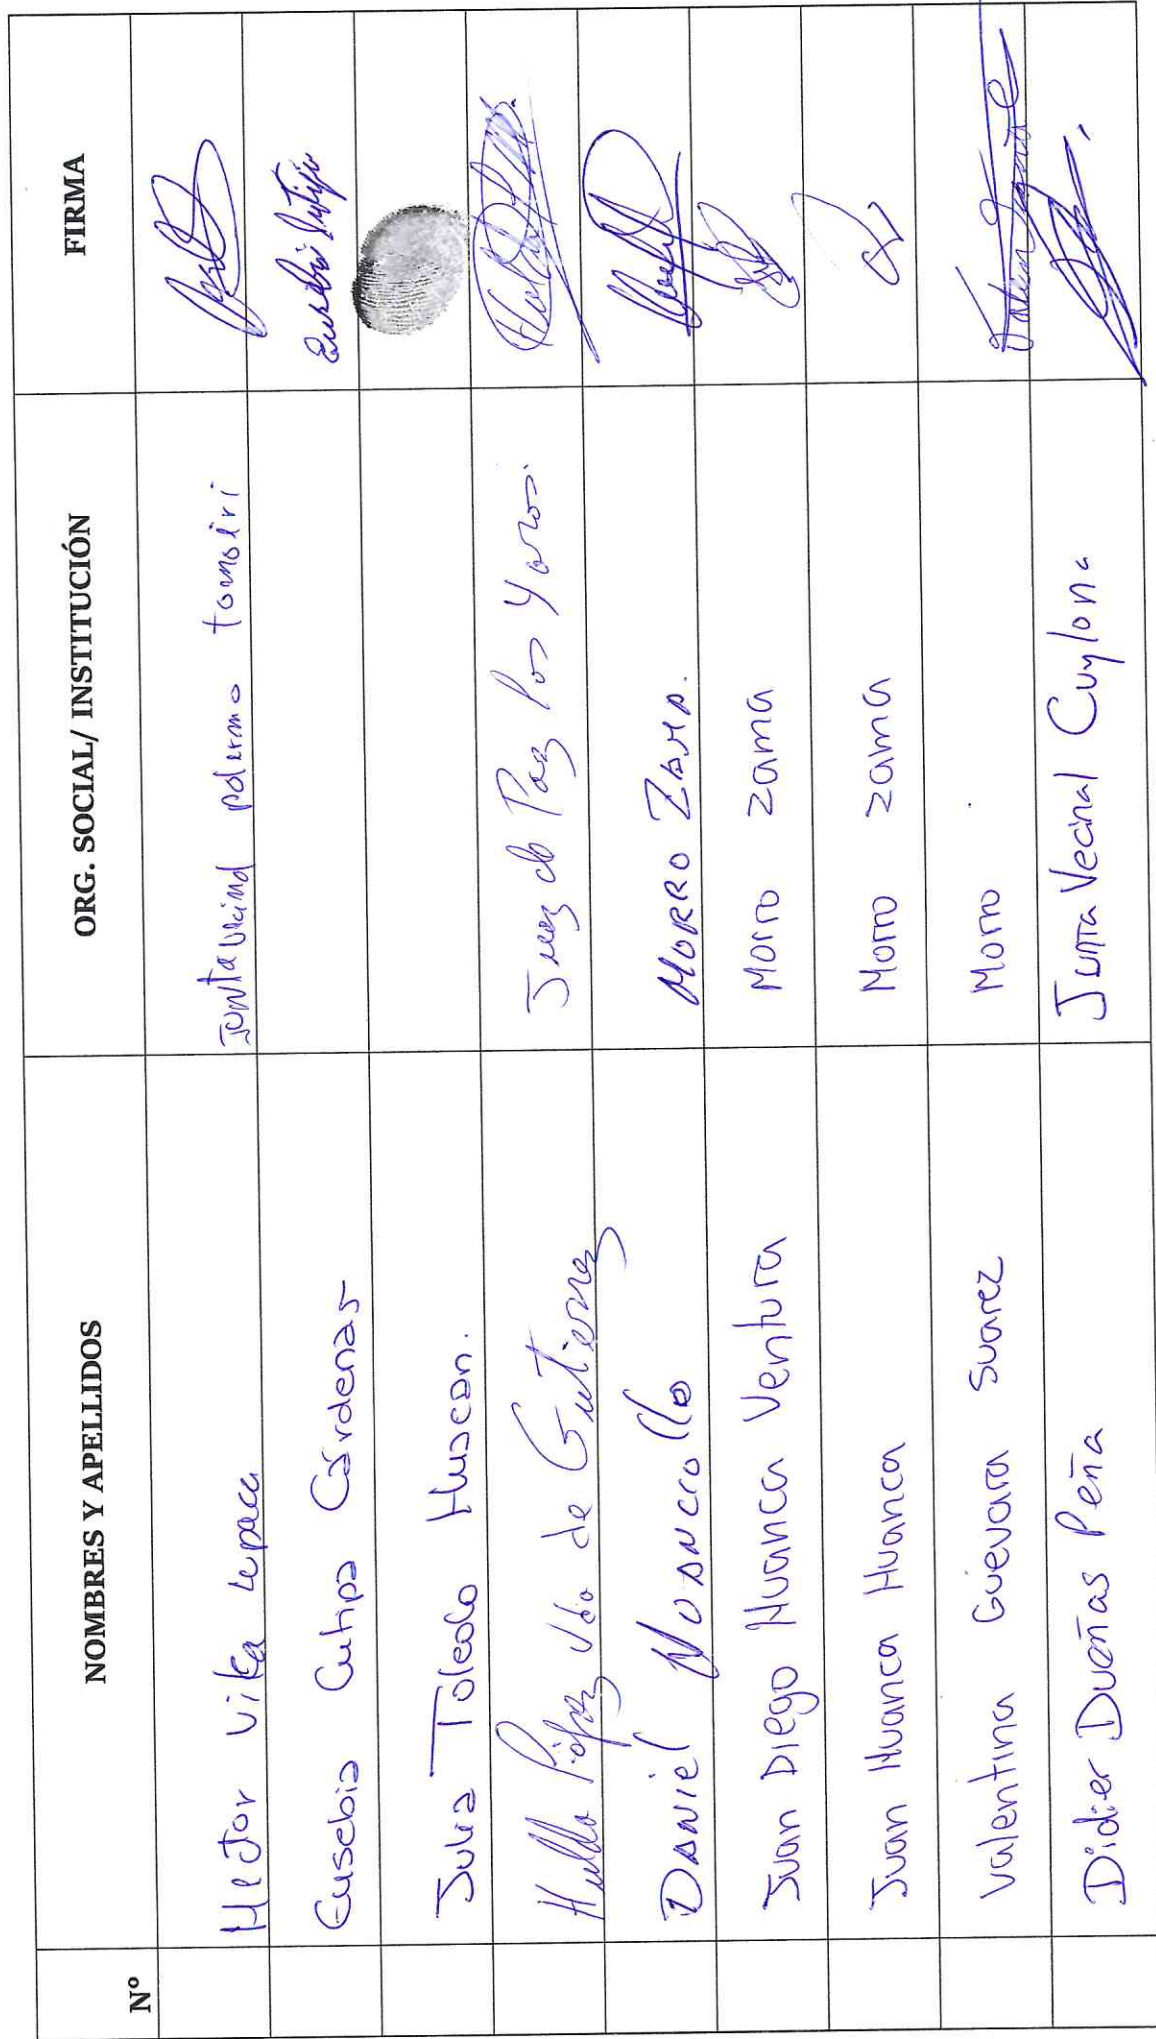 Nº NOMBRES Y APELLIDOS ORG. SOCIAL/ INSTITUCIÓN FIRMA
Hector Vika Junta Vecinal palermo
Eusebia Cutipa Cárdenas Eusebia Cutipa
Julia Toledo Huacan.
Hulda Vda de Gutierrez Juez de Paz Los
Daniel MORRO ZAMA.
Juan Diego Huanca Ventura Morro zama
Juan Huanca Huanca Morro zama
Valentina Guevara Suarez Morro
Didier Dueñas Peña Junta Vecinal Cuylona